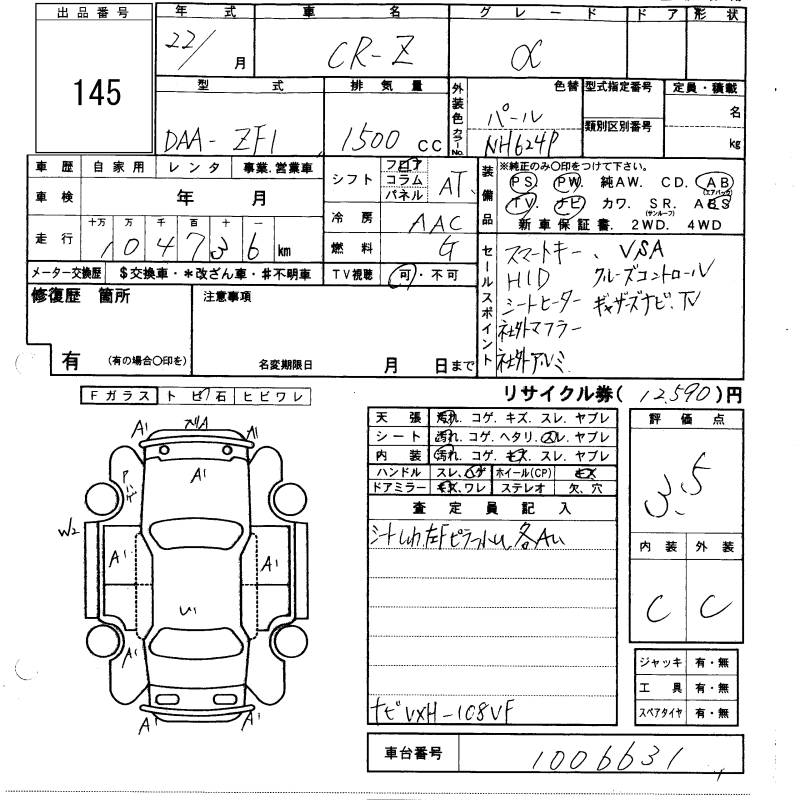 出品番号
145
年式 車名 グレード ドア 形状
22/ 月 CR-Z α
型式 排気量 外装色 色替 型式指定番号 定員・積載
DAA-ZF1 1500 cc パール 名
カラーNo. NH624P 類別区別番号 kg
車歴 自家用 レンタ 事業.営業車
車検 年 月
十万 万 千 百 十 一
走行 1 0 4 7 3 6 km
メーター交換歴 $交換車・*改ざん車・#不明車
シフト フロア コラム パネル AT
冷房 AAC
燃料 G
TV視聴 可・不可
装備品 ※純正のみ○印をつけて下さい。
PS. PW. 純AW. CD. AB (エアバック)
TV. ナビ カワ. SR. ABS
(サンルーフ)
新車保証書. 2WD. 4WD
修復歴 箇所 注意事項
有 (有の場合○印を)
名変期限日 月 日まで
セールスポイント
スマートキー、VSA
HID クルーズコントロール
シートヒーター ギャザーズナビ、TV
社外マフラー
社外アルミ
リサイクル券( 12,590)円
Fガラス トビ石 ヒビワレ
天張 汚れ. コゲ. キズ. スレ. ヤブレ
シート 汚れ. コゲ. ヘタリ. スレ. ヤブレ
内装 汚れ. コゲ. キズ. スレ. ヤブレ
ハンドル スレ. コゲ ホイール(CP) キズ
ドアミラー キズ. ワレ ステレオ 欠. 穴
査定員記入
ナビVXH-108VF
評価点
3.5
内装 外装
C C
ジャッキ 有・無
工具 有・無
スペアタイヤ 有・無
車台番号 1006631
A1
A1
P
W2
A1
A1
U1
A1
A1
A1